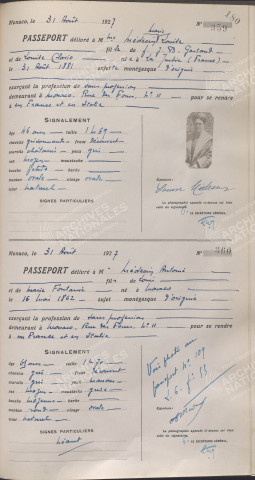 180
Monaco, le 31 Août 1927 N° 359
PASSEPORT délivré à M me Médecin Louise
fille de J. B.
et de Louise née à La Turbie (France)
le 31 Août 1881 sujette monégasque d'origine
exerçant la profession de sans profession
demeurant à Monaco, Rue N° 11 pour se rendre
en France et en Italie
SIGNALEMENT
âge 46 ans taille 1m 59
cheveux grisonnants front découvert
sourcils châtains yeux gris
nez moyen moustache
bouche petite barbe
menton ovale visage ovale
teint naturel
SIGNES PARTICULIERS
Signature :
Louise Médecin
La photographie apposée ci-dessus est bien celle du signataire.
LE SECRÉTAIRE GÉNÉRAL,
Monaco, le 31 Août 1927 N° 360
PASSEPORT délivré à M Médecin Antoine
fils de
et de Marie Fontaine né à Monaco
le 16 mai 1862 sujet monégasque d'origine
exerçant la profession de sans profession
demeurant à Monaco, Rue N° 11 pour se rendre
en France et en Italie
SIGNALEMENT
âge 65 ans taille 1m 70
cheveux gris front découvert
sourcils gris yeux marrons
nez moyen moustache grise
bouche moyenne barbe
menton rond visage ovale
teint naturel
SIGNES PARTICULIERS
néant
Voir photo au
passeport N° 109
Signature :
La photographie apposée ci-dessus est bien celle du signataire.
LE SECRÉTAIRE GÉNÉRAL,
ARCHIVES
NATIONALES